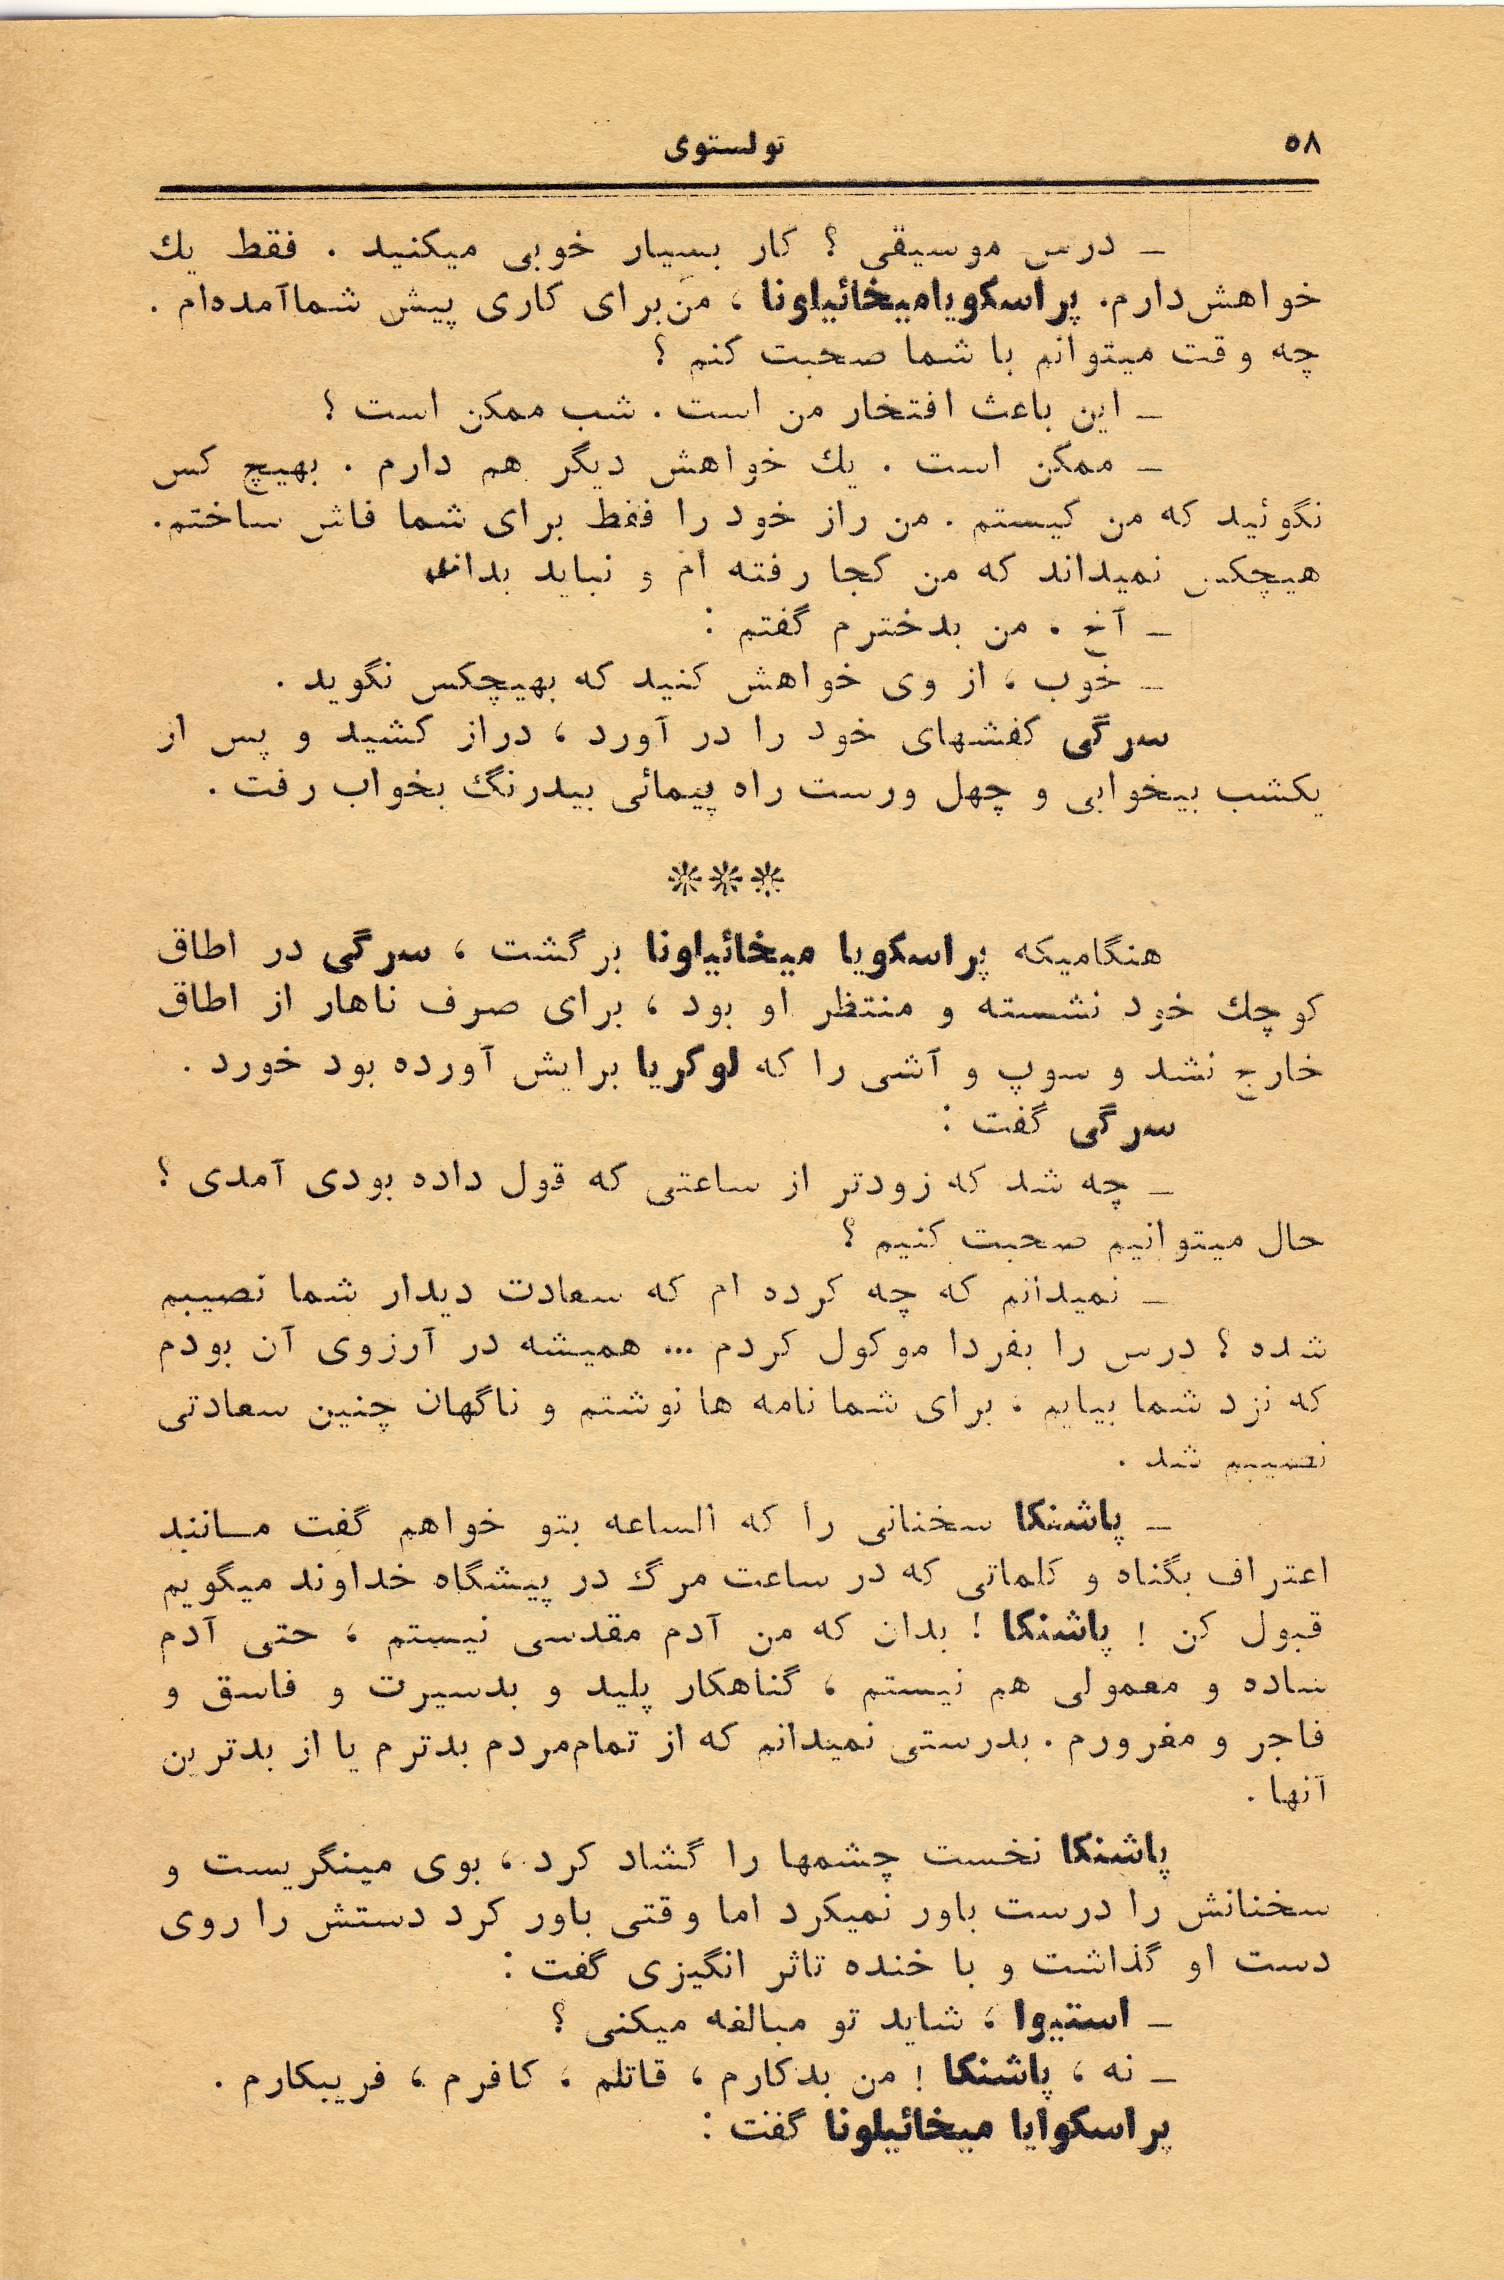 ۵۸
تولستوی
ـ درس موسیقی ؟ کار بسیار خوبی میکنید . فقط یك
خواهش‌دارم. پراسکویامیخائیلونا ، من‌برای کاری پیش شماآمده‌ام .
چه وقت میتوانم با شما صحبت کنم ؟
ـ این باعث افتخار من است . شب ممکن است ؟
ـ ممکن است . یك خواهش دیگر هم دارم . بهیچ کس
نگوئید که من کیستم . من راز خود را فقط برای شما فاش ساختم.
هیچکس نمیداند که من کجا رفته ام و نباید بداند
ـ آخ . من بدخترم گفتم :
ـ خوب ، از وی خواهش کنید که بهیچکس نگوید .
سرگی کفشهای خود را در آورد ، دراز کشید و پس از
یکشب بیخوابی و چهل ورست راه پیمائی بیدرنگ بخواب رفت .
***
هنگامیکه پراسکویا میخائیلونا برگشت ، سرگی در اطاق
کوچك خود نشسته و منتظر او بود ، برای صرف ناهار از اطاق
خارج نشد و سوپ و آشی را که لوکریا برایش آورده بود خورد .
سرگی گفت :
ـ چه شد که زودتر از ساعتی که قول داده بودی آمدی ؟
حال میتوانیم صحبت کنیم ؟
ـ نمیدانم که چه کرده ام که سعادت دیدار شما نصیبم
شده ؟ درس را بفردا موکول کردم ... همیشه در آرزوی آن بودم
که نزد شما بیایم . برای شما نامه ها نوشتم و ناگهان چنین سعادتی
نصیبم شد .
ـ پاشنکا سخنانی را که الساعه بتو خواهم گفت مـانند
اعتراف بگناه و کلماتی که در ساعت مرگ در پیشگاه خداوند میگویم
قبول کن ! پاشنکا ! بدان که من آدم مقدسی نیستم ، حتی آدم
ساده و معمولی هم نیستم ، گناهکار پلید و بدسیرت و فاسق و
فاجر و مغرورم . بدرستی نمیدانم که از تمام‌مردم بدترم یا از بدترین
آنها .
پاشنکا نخست چشمها را گشاد کرد ، بوی مینگریست و
سخنانش را درست باور نمیکرد اما وقتی باور کرد دستش را روی
دست او گذاشت و با خنده تاثر انگیزی گفت :
ـ استیوا ، شاید تو مبالغه میکنی ؟
ـ نه ، پاشنکا ! من بدکارم ، قاتلم ، کافرم ، فریبکارم .
پراسکوایا میخائیلونا گفت :